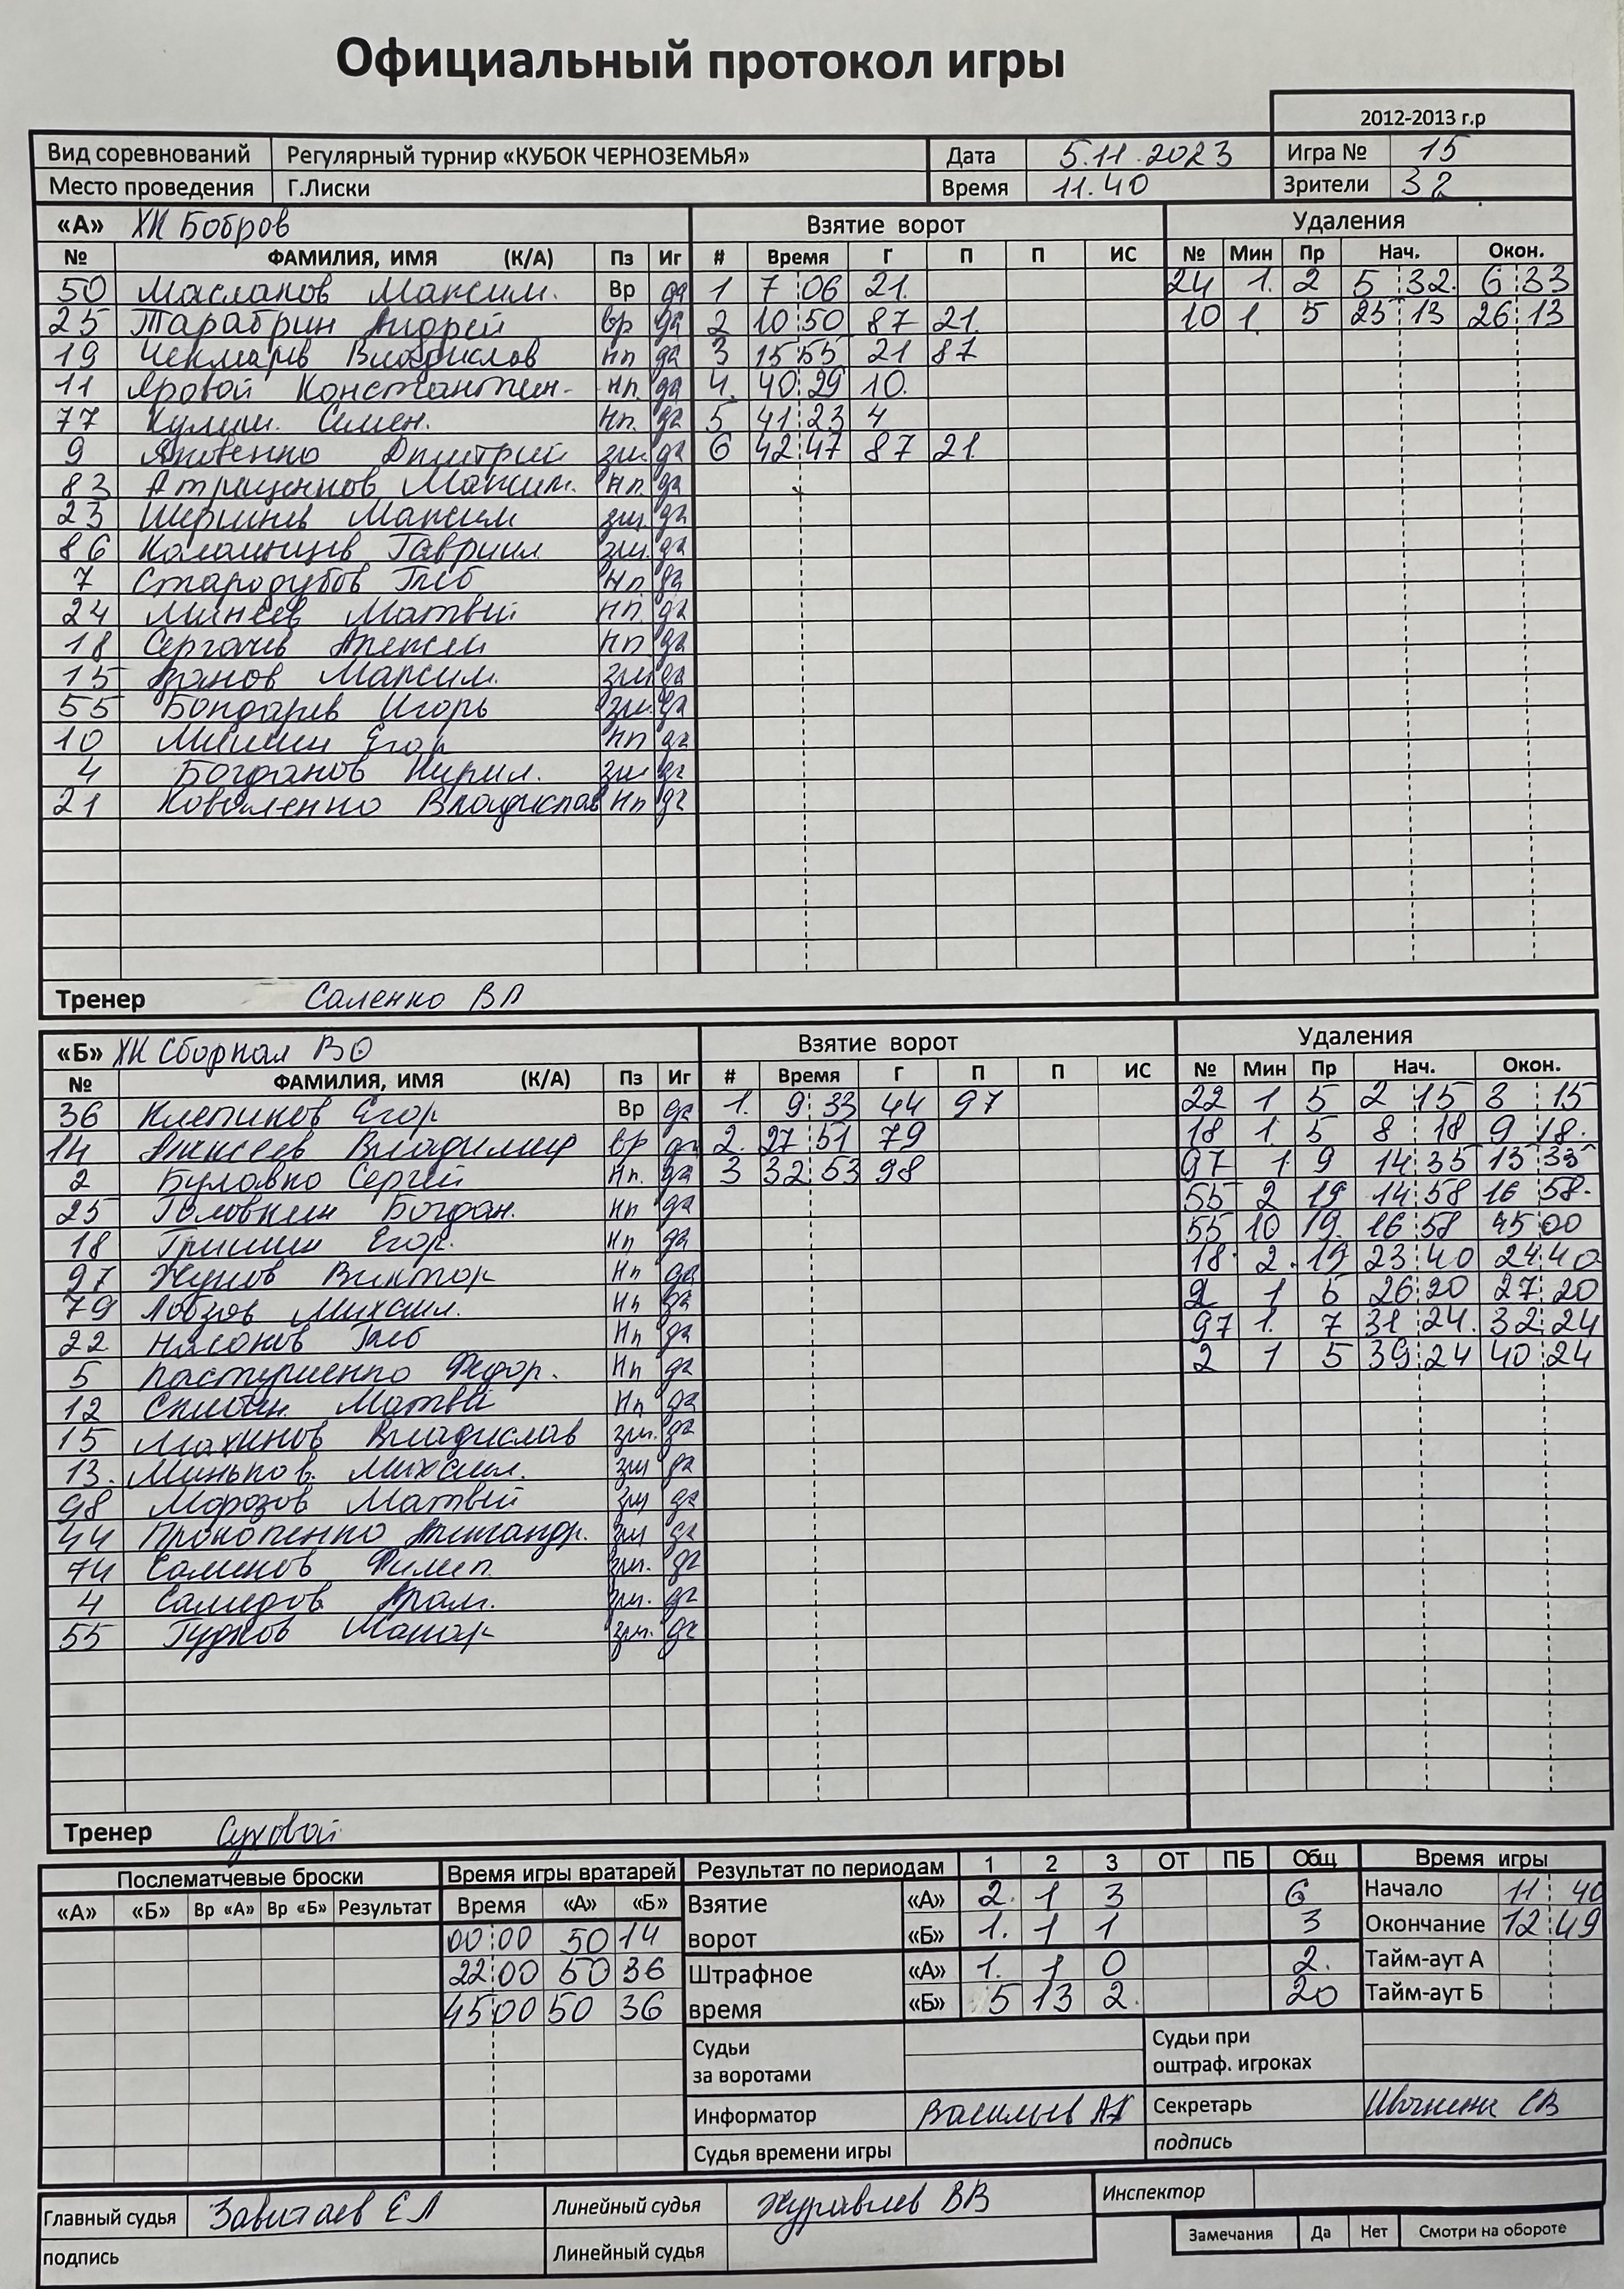 Официальный протокол игры
2012-2013 г.р
Вид соревнований Регулярный турнир «КУБОК ЧЕРНОЗЕМЬЯ» Дата 5.11.2023 Игра № 15
Место проведения Г.Лиски Время 11.40 Зрители 32
«А» ХК Бобров Взятие ворот Удаления
№ ФАМИЛИЯ, ИМЯ (К/А) Пз Иг # Время Г П П ИС № Мин Пр Нач. Окон.
50 Масланов Максим. Вр да 1 7 06 21. 24 1. 2 5 32. 6 33
25 Тарабрин Андрей вр да 2 10 50 87 21. 10 1. 5 25 13 26 13
19 Чекмарев Владислав нп да 3 15 55 21 87
11 Яровой Константин. нп. да 4. 40 29 10.
77 Кулиш. Семен. нп. да 5 41 23 4
9 Яковенко Дмитрий зщ. да 6 42 47 87 21
83 Атращенков Максим. нп. да
23 Максим зщ. да
86 Гавриил зщ. да
7 Стародубов Глеб нп. да
24 Минеев Матвей нп. да
18 Сергачев Алексей нп. да
15 Максим. зщ да
55 Бондарев Игорь зщ. да
10 Мишин Егор нп да
4 Богданов Кирил. зщ да
21 Коваленко Владислав нп да
Тренер Саленко ВА
«Б» ХК Сборная ВО Взятие ворот Удаления
№ ФАМИЛИЯ, ИМЯ (К/А) Пз Иг # Время Г П П ИС № Мин Пр Нач. Окон.
36 Клепиков Егор Вр да 1. 9 33 44 97 22 1 5 2 15 3 15
14 Алексеев Владимир вр да 2. 27 51 79 18 1. 5 8 18 9 18.
2 Булавко Сергей нп. да 3 32 53 98 97 1. 9 14 35 15 35
25 Головкин Богдан. нп да 55 2 19 14 58 16 58.
18 Гришин Егор. нп да 55 10 19. 16 58 45 00
97 Жуков Виктор нп да 18 2. 19 23 40 24 40
79 Лобзов Михаил. нп да 2 1 5 26 20 27 20
22. Насонов Глеб нп да 97 1. 7 31 24. 32 24
5 Пастушенко Федор. нп да 2 1 5 39 24 40 24
12 Матвей нп да
15 Махинов Владислав зщ. да
13. Миньков. Михаил. зщ да
98 Морозов Матвей зщ да
44 Прокопенко Александр. зщ да
74 Саликов Филип. зщ. да
4 Самедов Арам. зщ. да
55 Гудков Макар зщ. да
Тренер Суховой
Послематчевые броски Время игры вратарей Результат по периодам 1 2 3 ОТ ПБ Общ Время игры
«А» «Б» Вр «А» Вр «Б» Результат Время «А» «Б» Взятие ворот «А» 2. 1 3 6 Начало 11 40
00 00 50 14 «Б» 1. 1 1 3 Окончание 12 49
22 00 50 36 Штрафное время «А» 1. 1 0 2. Тайм-аут А
45 00 50 36 «Б» 5 13 2. 20 Тайм-аут Б
Судьи за воротами Судьи при оштраф. игроках
Информатор Васильев Секретарь СВ
Судья времени игры подпись
Главный судья Завитаев ЕА Линейный судья Журавлев ВВ Инспектор
подпись Линейный судья Замечания Да Нет Смотри на обороте